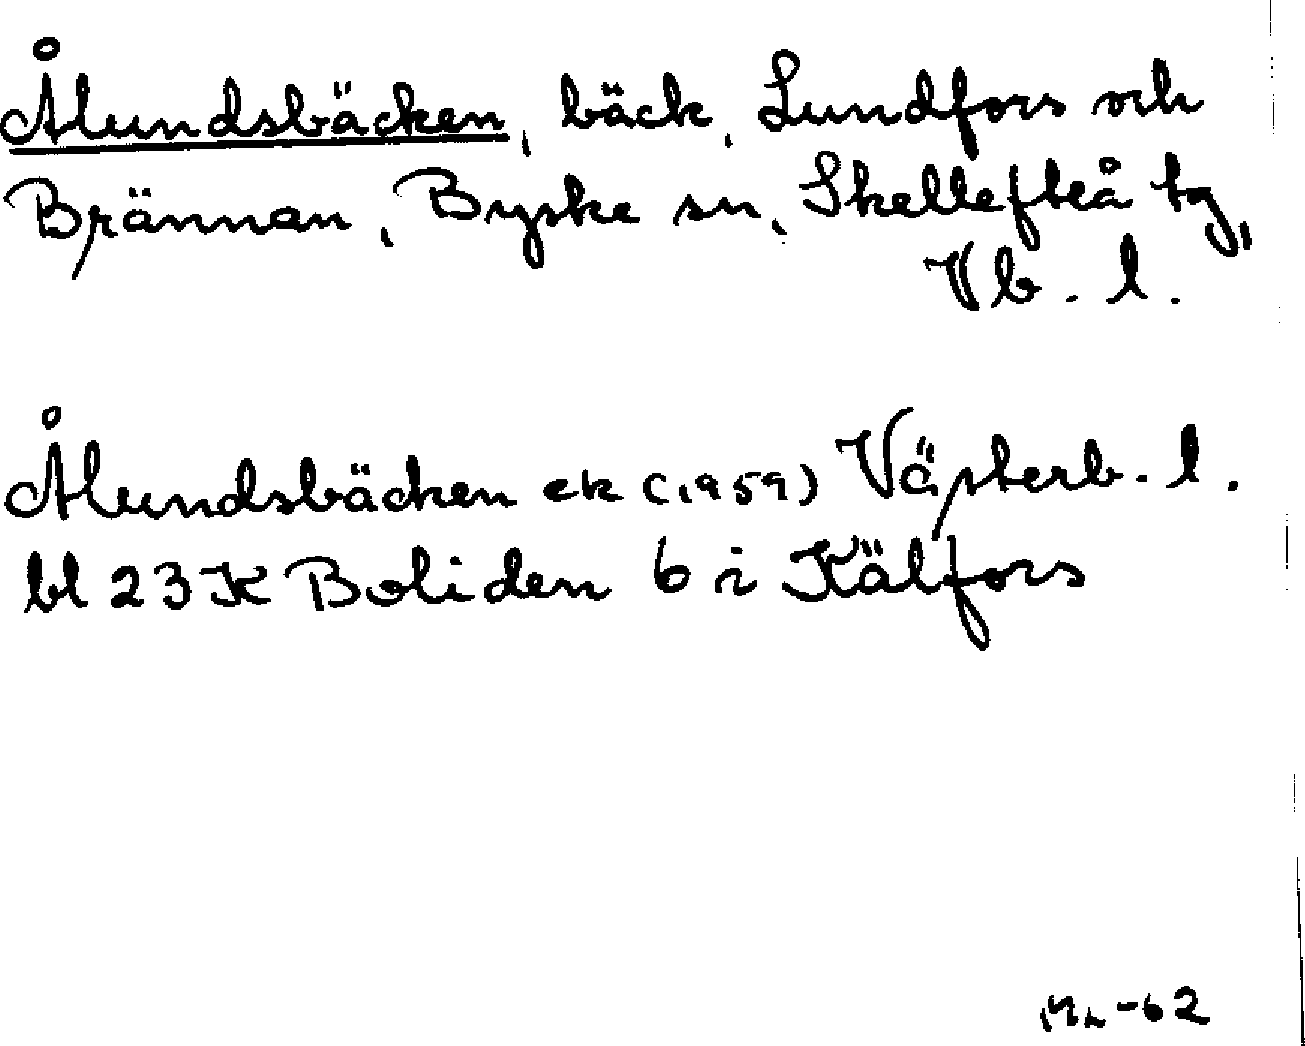 Ålundsbäcken, bäck, Lundfors och
Brännan, Byske sn, Skellefteå tg,
Vb. l.
Ålundsbäcken ek (1959) Västerb. l.
bl 23 K Boliden 6 i Källfors
-62